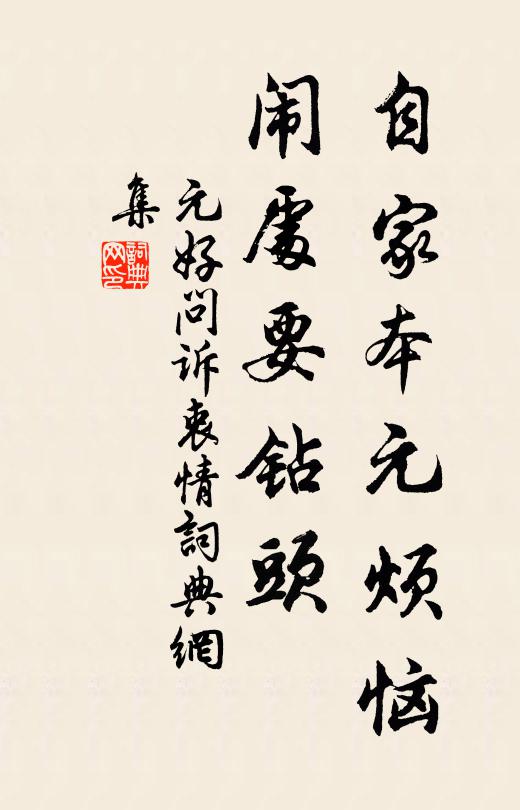 自家本元烦恼
闹處要钻頭
元好问诉衷情詞典網
集
詞典网印